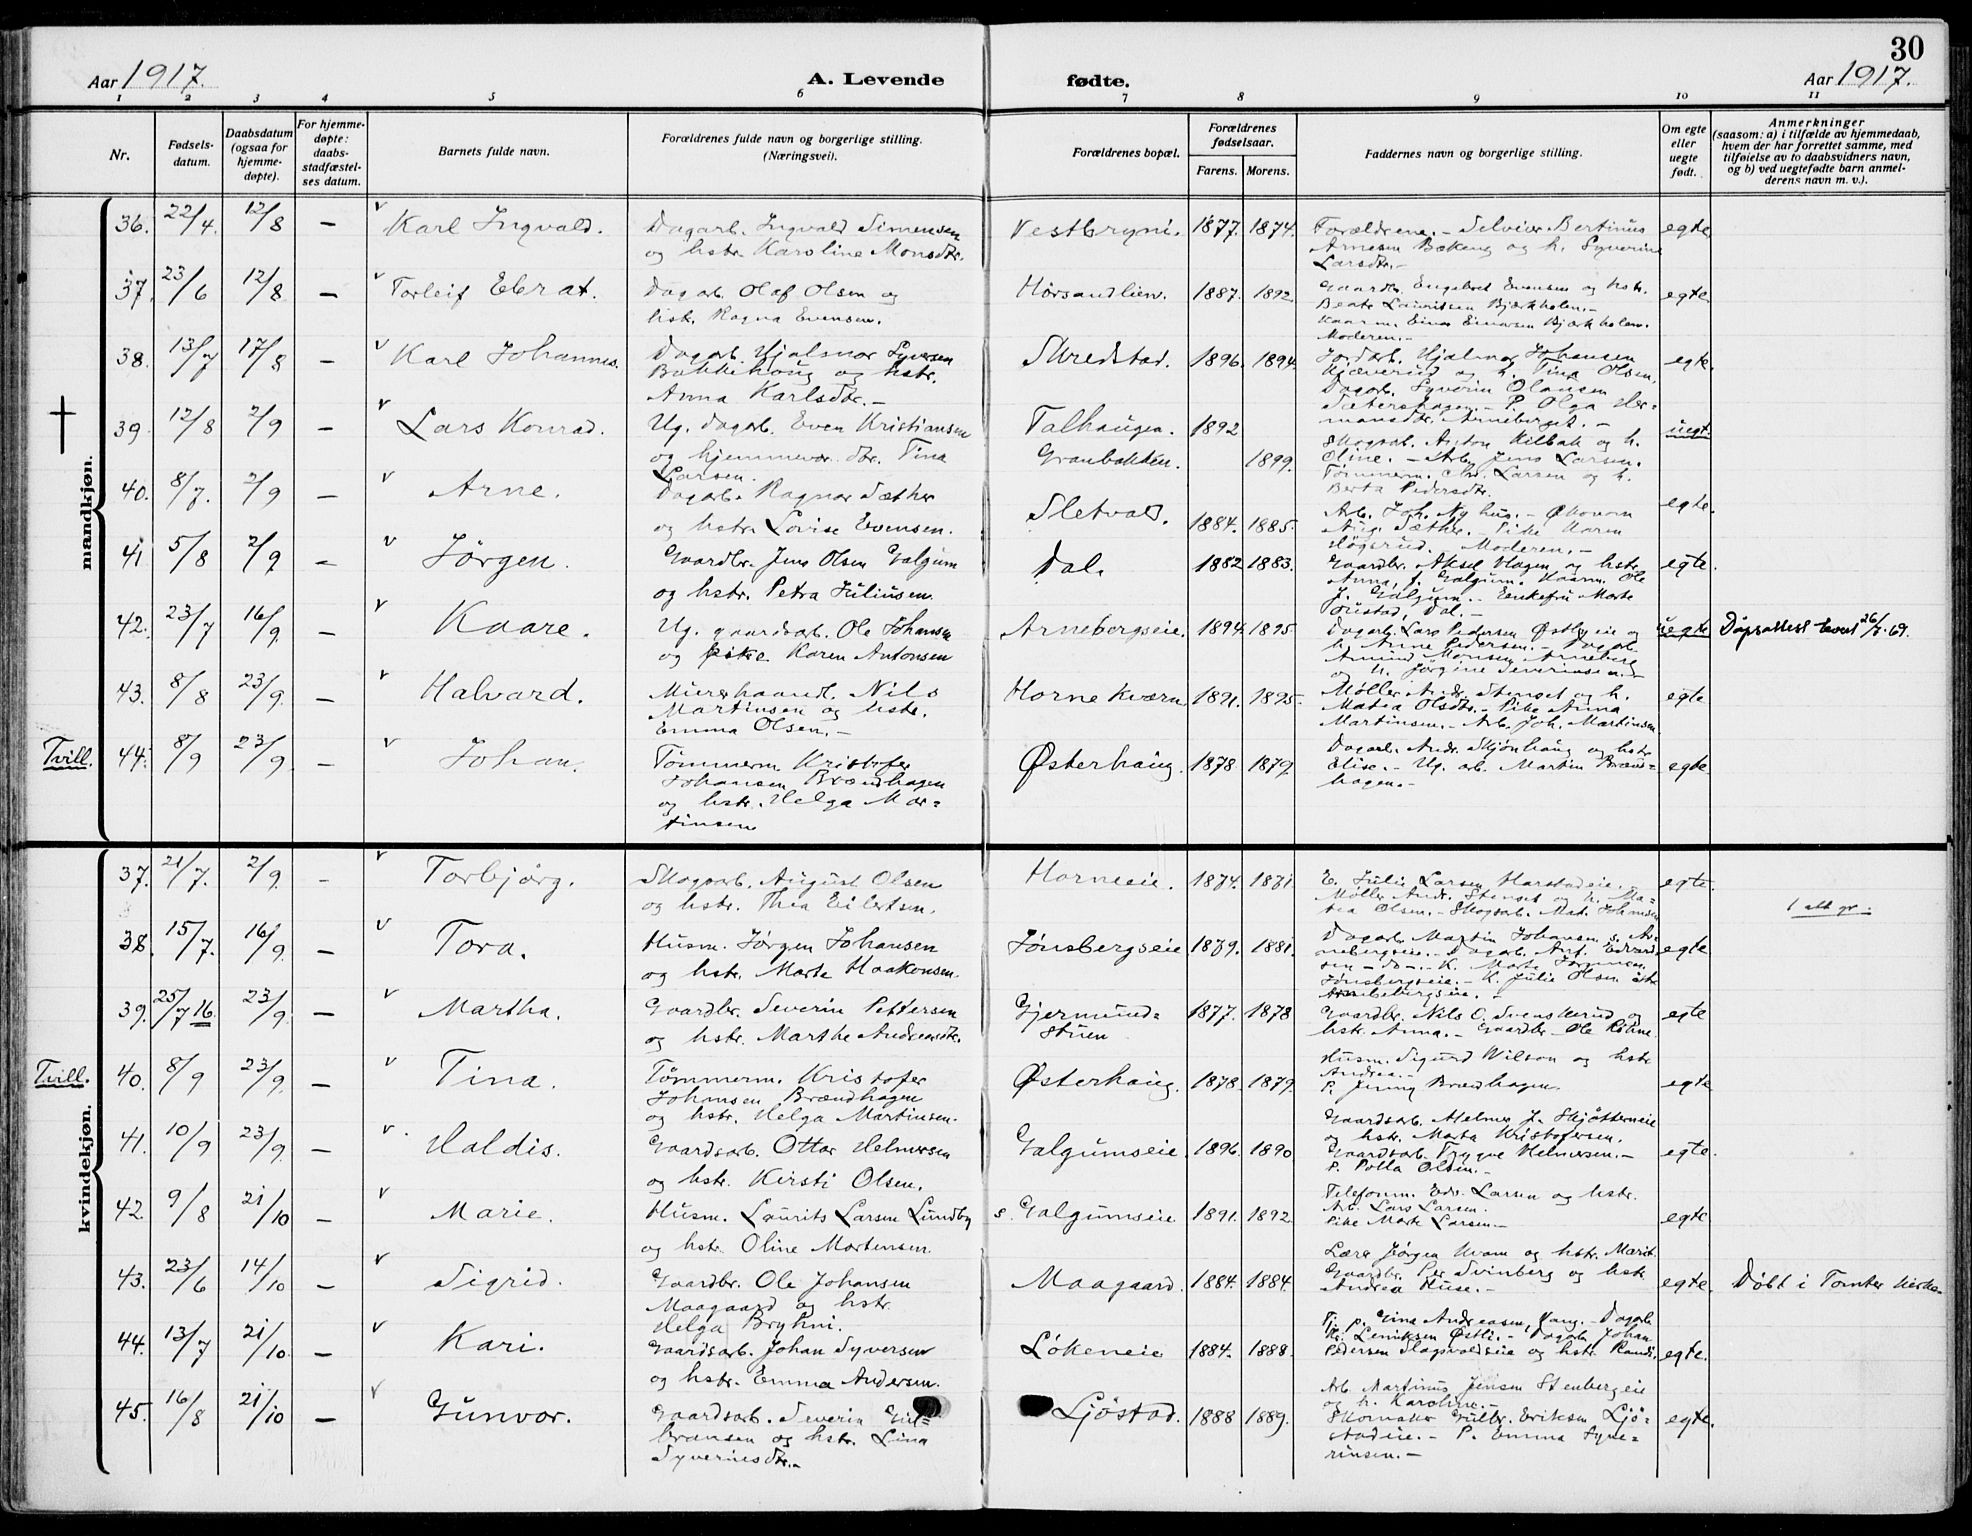 30
Aar 1917. A. Levende fødte. Aar 1917.
1 2 3 4 5 6 7 8 9 10 11
Nr. Fødselsdatum. Daabsdatum (ogsaa for hjemmedøpte). For hjemmedøpte: daabsstadfæstelses datum. Barnets fulde navn. Forældrenes fulde navn og borgerlige stilling. (Næringsvei). Forældrenes bopæl. Forældrenes fødselsaar. Farens. Morens. Faddernes navn og borgerlige stilling. Om egte eller uegte født. Anmerkninger (saasom: a) i tilfælde av hjemmedaab, hvem der har forrettet samme, med tilføielse av to daabsvidners navn, og b) ved uegtefødte barn anmelderens navn m. v.).
mandkjøn.
36. 22/4. 12/8 – Karl Ingvald. Dagarb. Ingvald Simensen Vestbryni. 1877. 1874. Forældrene. – Selveier Bertinus egte
og hstr. Karoline Monsdtr. Arnesen Bækeng og h. Syverine
Larsdtr. –
37. 23/6 12/8 – Torleif Ebrat. Dagarb. Olaf Olsen og Hörsandlien. 1887. 1892. Gaardbr. Engebret Evensen og hstr. egte
hstr. Ragna Evensen. Beate Lauritsen Bjærkholen. –
Kaarm. Einar Einarsen Bjærkholen.
Moderen. –
38. 13/7 17/8 – Karl Johannes. Dagarb. Hjalmar Syversen Skredstad. 1896. 1894. Jordarb. Hjalmar Johansen egte.
Bakkehaug og hstr. og h. Tina Olsen.
Anna Karlsdtr. – Dagarb. Syverin Olausen
Sæterhagen. – P. Olga Her-
mansdtr. Arneberget. –
39. 12/8 2/9 – Lars Konrad. Ug. dagarb. Even Kristiansen Talhaugen. 1892 uegt.
og hjemmevær. dtr. Tina Granbakken. 1899. Skogsarb. Anton Kilbak og h.
Larsen. Oline. – Arb. Jens Larsen.
Tømmerm. Larsen og h.
Berta Pedersdtr.
40. 8/7. 2/9 – Arne. Dagarb. Ragnar Sæther Sletvold. 1884. 1885. Arb. Joh. Nyhus. – Økonom egte.
og hstr. Lovise Evensen. Aug. Sæther. – Pike Karen
Høgsrud. Moderen. –
41 5/8 2/9 – Jørgen. Gaardbr. Jens Olsen Galgum Dal. 1882 1883. Gaardbr. Aksel Hagen og hstr. egte.
og hstr. Petra Juliusen. Anna J. Galgum. Kaarm. Ole
J. Galgum. – Enkefru Marte
Toustad, Dal. –
42. 23/7 16/9 – Kaare. Ug. gaardsarb. Ole Johansen Arnebergseie. 1894. 1895. Dagarb. Lars Pedersen Østbyeie og uegte Dåpsattest 26/8-69.
og pike Karen Antonsen h. Anne Pedersen. – Dagarb.
Amund Monsen Arneberg
og h. Jørgine Severinsen. –
43. 8/8 23/9. – Halvard. Murerhaandl. Nils Horne Kværn 1891. 1895- Møller Andr. Stenset og h. egte
Martinsen og hstr. Matea Olsdtr. – Pike Anna
Emma Olsen. – Martinsen. – Arb. Joh. Martinsen
Tvill. 44. 8/9 23/9. – Johan. Tømmerm. Kristofer Østerhaug. 1878 1879. Dagarb. Andr. Skjønhaug og hstr. egte
Johansen Brændhagen Elise. – Ug. arb. Martin Brænd-
og hstr. Helga Mar- hagen. –
tinsen
kvindekjøn.
37. 21/7. 2/9. – Torbjørg. Skogsarb. August Olsen Horneeie. 1874. 1881. E. Julie Larsen Harstadeie. – egte. 1 att gr.
og hstr. Thea Eilertsen. Møller Andr. Stenset og h. Ma-
tea Olsen. – Skogsarb. Mat. Johansen
38. 15/7. 16/9. – Tora. Husm. Jørgen Johansen Jønsbergseie 1879. 1881. Dagarb. Martin Johansen s. Ar- egte
og hstr. Marte Haakonsen. nebergseie. – Dagarb. Ant. Edvard-
sen – do –. K. Mate
Jønsbergseie. – K. Julie Olsen
Arnebergseie. –
39. 25/7 16. 23/9. – Martha. Gaardbr. Severin Pettersen Gjermund- 1877. 1878 Gaardbr. Nils O. Svenskerud og egte
og hstr. Marthe Andreasdtr. stuen hstr. Anna. – Gaardbr. Ole Röhne.
Husm. Sigurd Wilson og hstr.
Andrea. –
Tvill. 40. 8/9 23/9. – Tina. Tømmerm. Kristofer Østerhaug. 1878. 1879. P. Jenny Brændhagen. egte
Johansen Brændhagen
og hstr. Helga Martinsen. Gaardsarb. Helmer J. Skjøttereie
41. 10/9 23/9. – Haldis. Gaardsarb. Ottar Helmersen Galgumseie. 1896. 1890 og hstr. Marta Kristofersen. egte.
og hstr. Kirsti Olsen. Gaardsarb. Trygve Helmersen. –
P. Polla Olsen. –
42. 9/8 21/10 – Marie. Husm. Laurits Larsen Lundby s. Galgumseie 1891. 1892. Telefonm. Edv. Larsen og hstr. egte
og hstr. Oline Mortensen. Arb. Lars Larsen.
Pike Marte Larsen. –
43. 23/6 14/10 – Sigrid. Gaardbr. Ole Johansen Maagaard. 1884. 1884. Lærer Jørgen Hvam og hstr. Marit. egte. Döbt i Tomter kirke.
Maagaard og hstr. Gaardbr. Per Svinberg og hstr.
Helga Bryhni. Andrea Huse. –
44. 13/7 21/10. – Kari. Gaardsarb. Johan Syversen Lökeneie 1884. 1888. Tj. p. Gina Andreasen, Haug. – Dagarb. egte.
og hstr. Emma Andersen. Kr. Leniksen Østli. – Dagarb. Johan
Pedersen Slagsvoldseie og hstr. Randi.
45. 16/8 21/10 – Gunvor. Gaardsarb. Severin Gul- Ljöstad. 1888 1889. Arb. Martinus Jensen Stenbergeie egte.
bransen og hstr. Lina og h. Karoline. –
Syverinsdtr. – Skomaker Gulbr. Eriksen Ljö-
stadeie. – P. Emma Syve-
rinsen. –